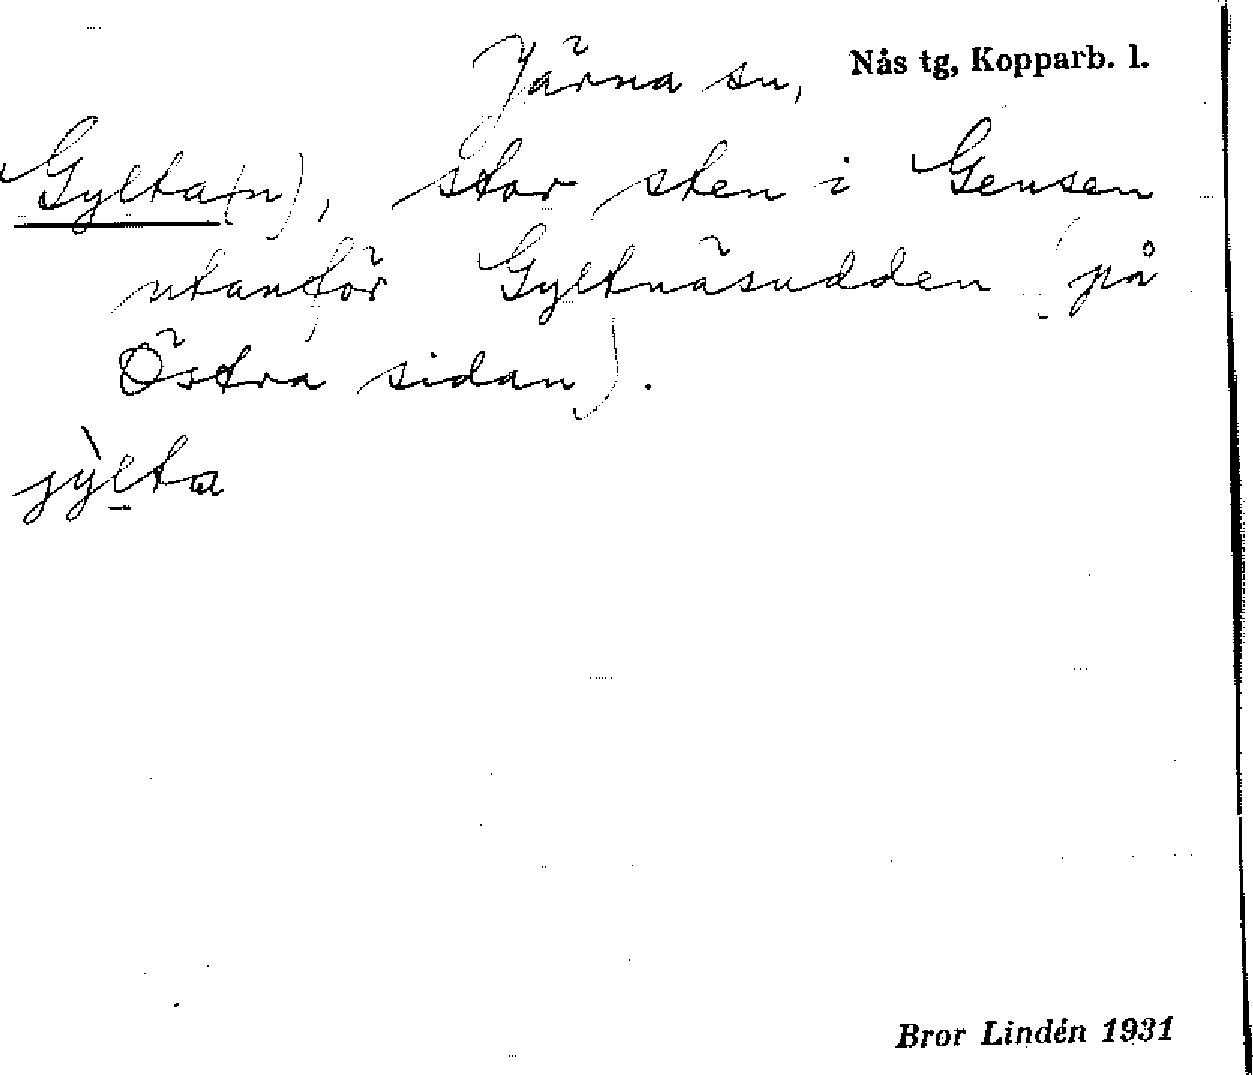 Järna sn, Nås tg, Kopparb. l.
Gylta(n), stor sten i Gensen
utanför Gyltnäsudden (på
Östra sidan).
jỳ̖lta
Bror Lindén 1931